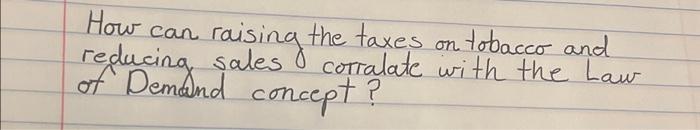 How can raising the taxes on tobacco and
reducing sales corralate with the Law
of Demand concept?